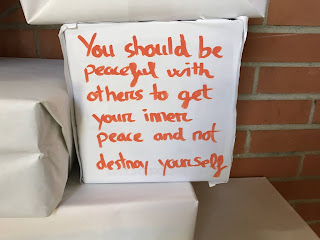 You should be
peaceful with
others to get
your inner
peace and not
destroy yourself